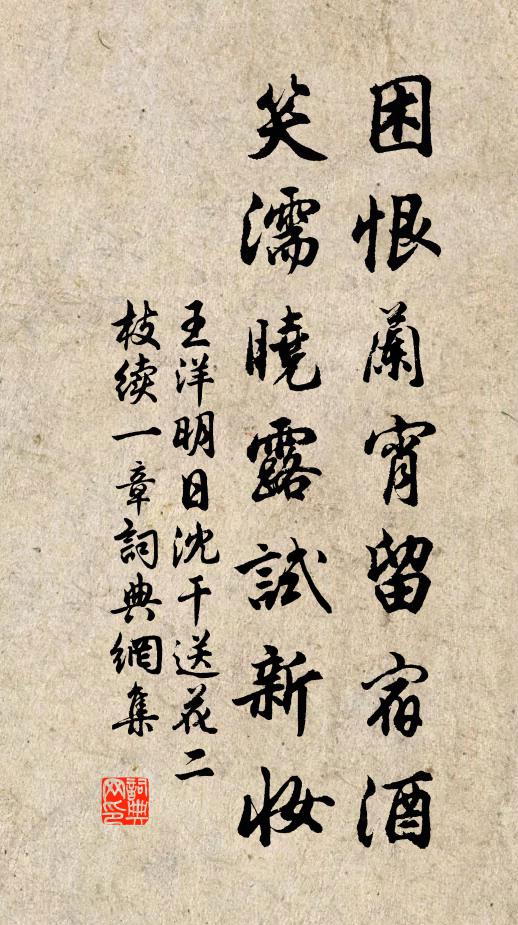 困恨蘭宵留宿酒
笑濡曉露試新妝
王洋明日沈干送花二
枝续一章詞典網集
詞典网印